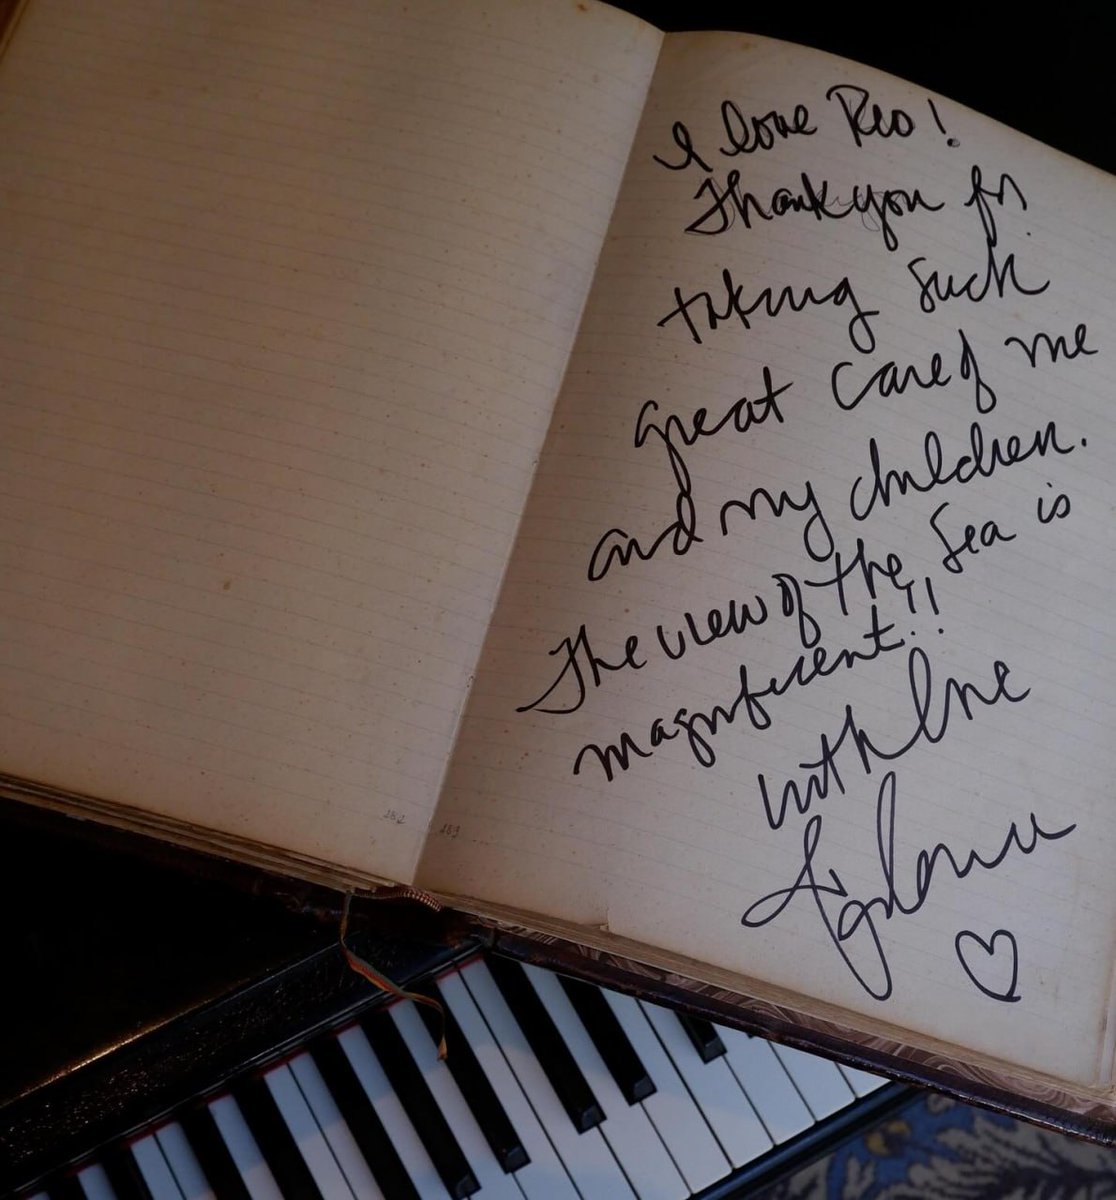 I love Rio!
Thank you for
taking such
great care of me
and my children.
The view of the sea is
magnificent!!
with love
182
183